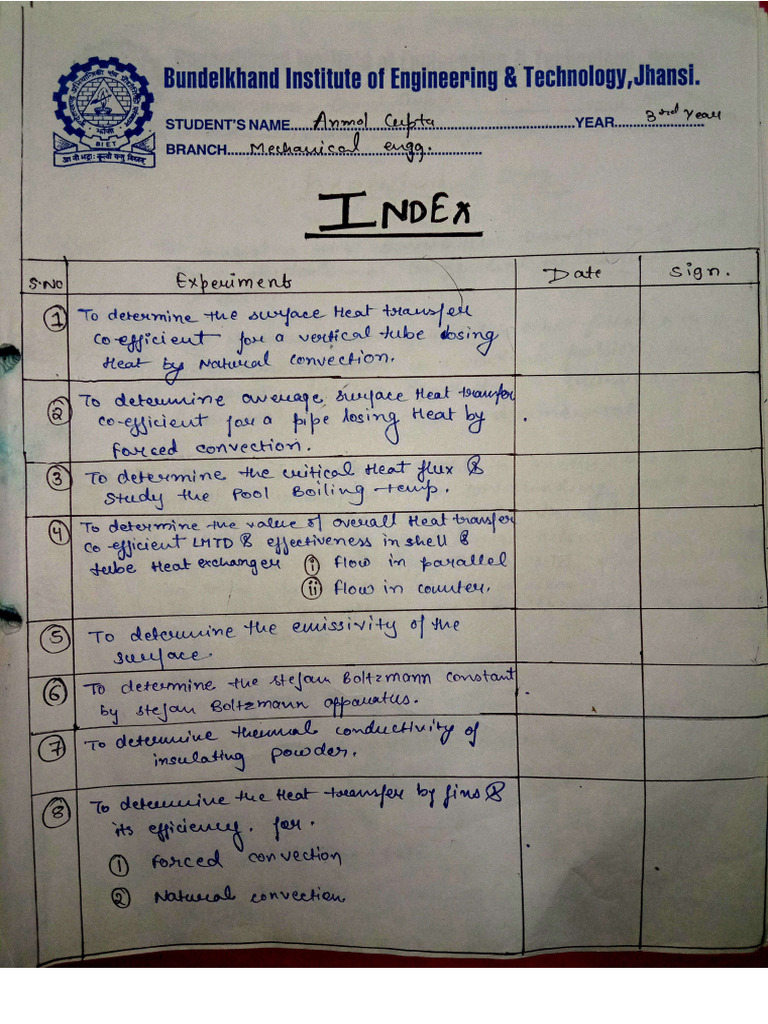 Bundelkhand Institute of Engineering & Technology, Jhansi.
STUDENT'S NAME Anmol Gupta YEAR 3rd Year
BRANCH Mechanical engg.
BIET
INDEX
S.NO Experiments Date Sign.
1 To determine the surface Heat transfer
co-efficient for a vertical tube losing
Heat by Natural convection.
2 To determine average surface Heat transfer
co-efficient for a pipe losing Heat by
forced convection.
3 To determine the critical Heat flux &
study the Pool Boiling temp.
4 To determine the value of overall Heat transfer
co-efficient LMTD & effectiveness in shell &
tube Heat exchanger i flow in parallel
ii flow in counter.
5 To determine the emissivity of the
surface.
6 To determine the stefan Boltzmann constant
by stefan Boltzmann apparatus.
7 To determine thermal conductivity of
insulating powder.
8 To determine the Heat transfer by fins &
its efficiency. for.
1 Forced convection
2 Natural convection